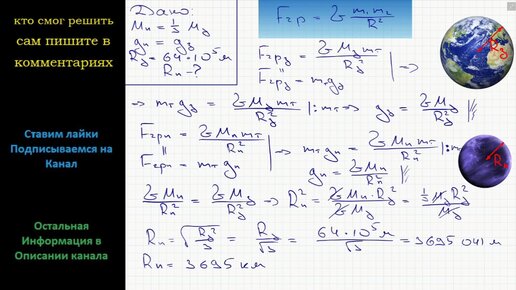 кто смог решить
сам пишите в
комментариях
Ставим лайки
Подписываемся на
Канал
Остальная
Информация в
Описании канала
Дано:
Mп = 1/3 Mз
gп = gз
Rз = 64·10⁵ м
Rп - ?
Fгр = G m₁m₂/R²
Fгрз = G Mз mт/Rз²
Fгрз = mт gз
⇒ mт gз = G Mз mт/Rз² |: mт ⇒ gз = G Mз/Rз²
Fгрп = G Mп mт/Rп²
Fгрп = mт gп
⇒ mт gп = G Mп mт/Rп² |: m
gп = G Mп/Rп²
G Mп/Rп² = G Mз/Rз² ⇒ Rп² = G Mп·Rз²/G Mз = 1/3 Mз Rз²/Mз
Rп = √(Rз²/3) = Rз/√3 = 64·10⁵ м/√3 = 3695 041 м
Rп = 3695 км
Rз
R